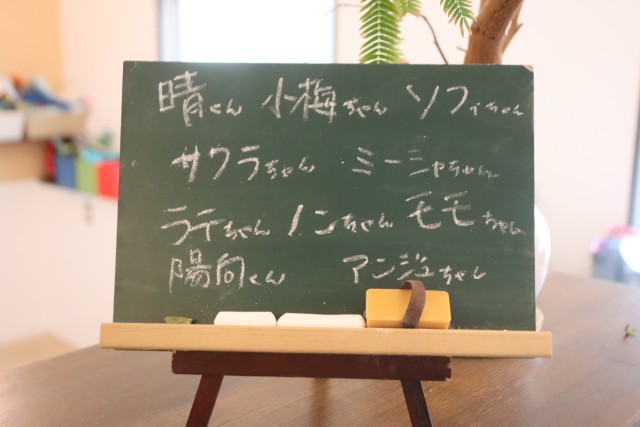 晴くん 小梅ちゃん ソフィちゃん
サクラちゃん ミーシャちゃん
ラテちゃん ノンちゃん モモちゃん
陽向くん アンジュちゃん